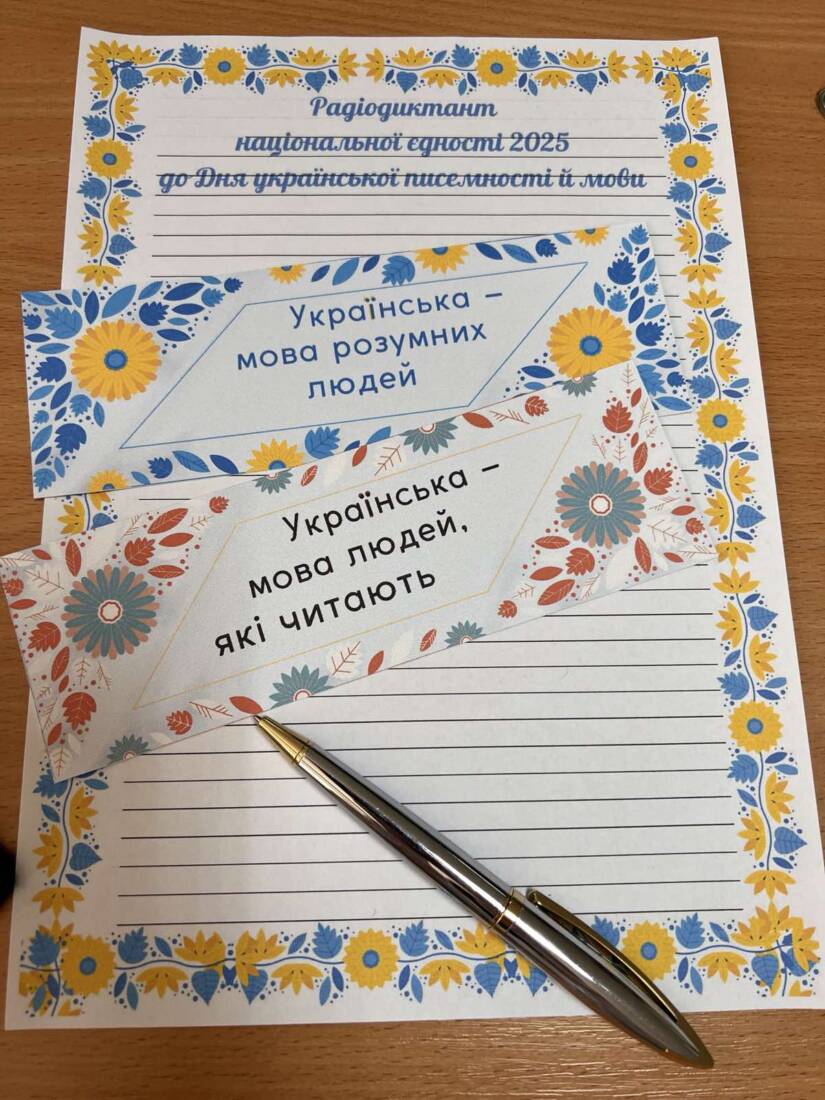 Радіодиктант
національної єдності 2025
до Дня української писемності й мови
Українська –
мова розумних
людей
Українська –
мова людей,
які читають